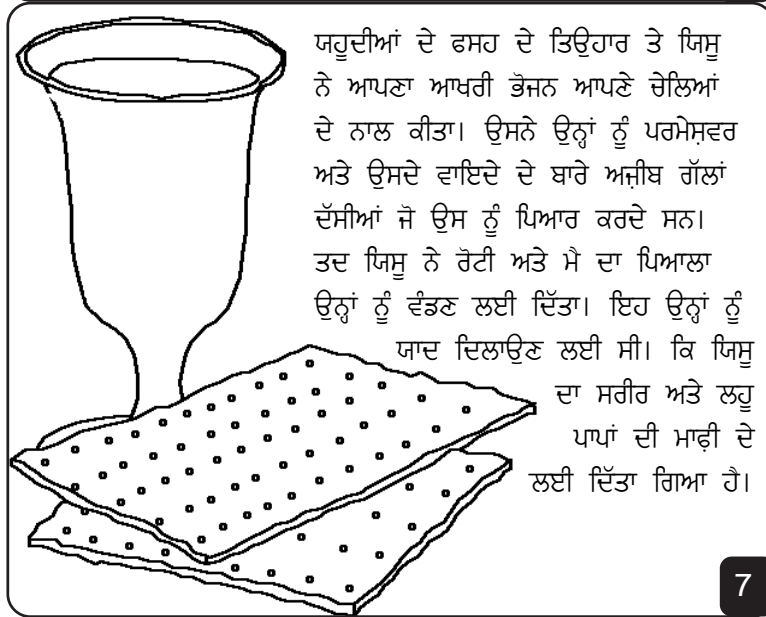 ਯਹੂਦੀਆਂ ਦੇ ਫਸਹ ਦੇ ਤਿਉਹਾਰ ਤੇ ਯਿਸੂ
ਨੇ ਆਪਣਾ ਆਖਰੀ ਭੋਜਨ ਆਪਣੇ ਚੇਲਿਆਂ
ਦੇ ਨਾਲ ਕੀਤਾ। ਉਸਨੇ ਉਨ੍ਹਾਂ ਨੂੰ ਪਰਮੇਸ਼ਵਰ
ਅਤੇ ਉਸਦੇ ਵਾਇਦੇ ਦੇ ਬਾਰੇ ਅਜ਼ੀਬ ਗੱਲਾਂ
ਦੱਸੀਆਂ ਜੋ ਉਸ ਨੂੰ ਪਿਆਰ ਕਰਦੇ ਸਨ।
ਤਦ ਯਿਸੂ ਨੇ ਰੋਟੀ ਅਤੇ ਮੈ ਦਾ ਪਿਆਲਾ
ਉਨ੍ਹਾਂ ਨੂੰ ਵੰਡਣ ਲਈ ਦਿੱਤਾ। ਇਹ ਉਨ੍ਹਾਂ ਨੂੰ
ਯਾਦ ਦਿਲਾਉਣ ਲਈ ਸੀ। ਕਿ ਯਿਸੂ
ਦਾ ਸਰੀਰ ਅਤੇ ਲਹੂ
ਪਾਪਾਂ ਦੀ ਮਾਫੀ ਦੇ
ਲਈ ਦਿੱਤਾ ਗਿਆ ਹੈ।
7